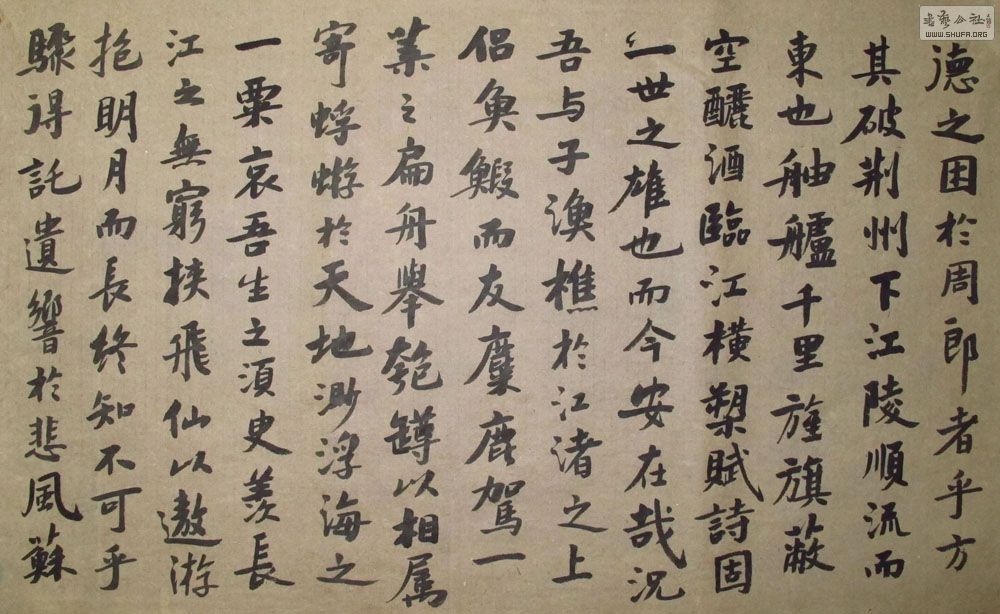 德之困於周郎者乎方
其破荆州下江陵順流而
東也舳艫千里旌旗蔽
空釃酒臨江横槊賦詩固
一世之雄也而今安在哉況
吾与子漁樵於江渚之上
侣魚鰕而友麋鹿駕一
葉之扁舟舉匏罇以相属
寄蜉蝣於天地渺浮海之
一粟哀吾生之須臾羨長
江之無窮挾飛仙以遨游
抱明月而長終知不可乎
驟得託遺響於悲風蘇
書藝公社
WWW.SHUFA.ORG